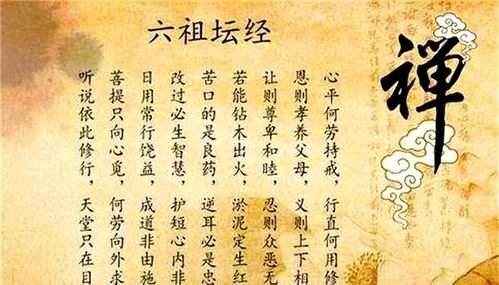 六祖坛经
禪
心平何劳持戒，行直何用修
恩则孝养父母，义则上下相
让则尊卑和睦，忍则众恶无
若能钻木出火，淤泥定生红
苦口的是良药，逆耳必是忠
改过必生智慧，护短心内非
日用常行饶益，成道非由施
菩提只向心觅，何劳向外求
听说依此修行，天堂只在目